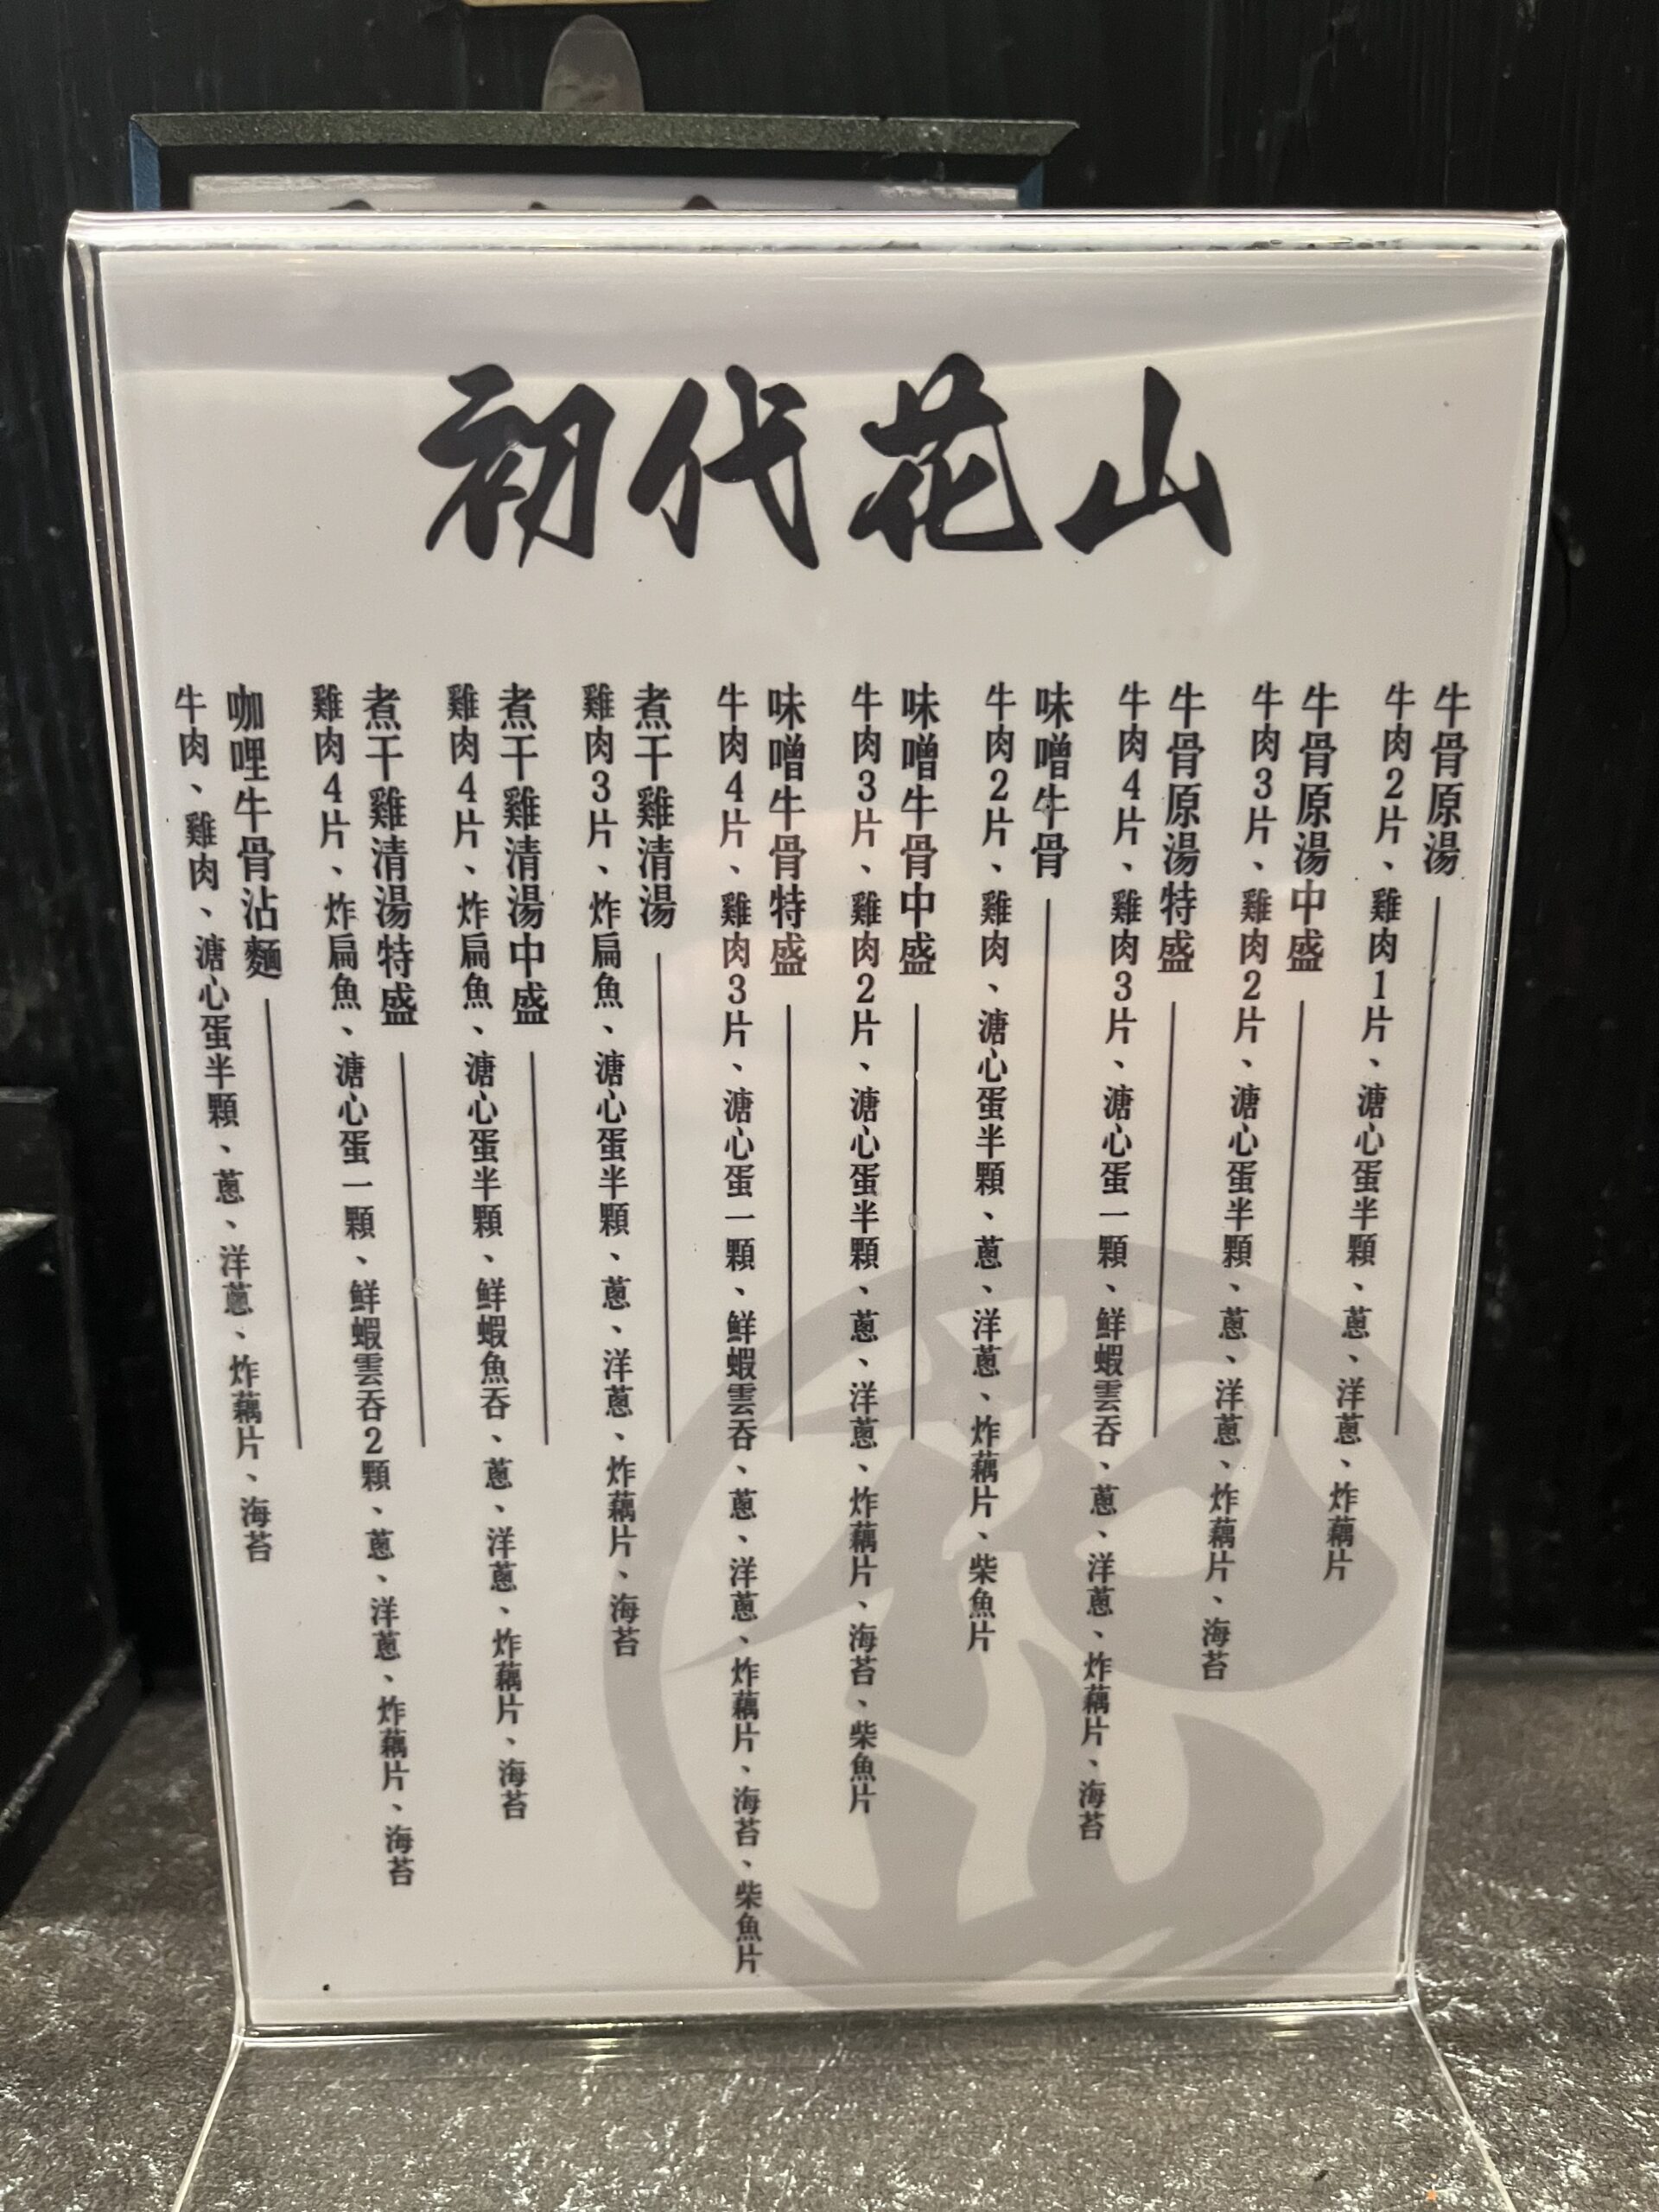 初代花山
牛骨原湯
牛肉2片、雞肉1片、溏心蛋半顆、蔥、洋蔥、炸藕片
牛骨原湯中盛
牛肉3片、雞肉2片、溏心蛋半顆、蔥、洋蔥、炸藕片、海苔
牛骨原湯特盛
牛肉4片、雞肉3片、溏心蛋一顆、鮮蝦雲吞、蔥、洋蔥、炸藕片、海苔
味噌牛骨
牛肉2片、雞肉、溏心蛋半顆、蔥、洋蔥、炸藕片、柴魚片
味噌牛骨中盛
牛肉3片、雞肉2片、溏心蛋半顆、蔥、洋蔥、炸藕片、海苔、柴魚片
味噌牛骨特盛
牛肉4片、雞肉3片、溏心蛋一顆、鮮蝦雲吞、蔥、洋蔥、炸藕片、海苔、柴魚片
煮干雞清湯
雞肉3片、炸扁魚、溏心蛋半顆、蔥、洋蔥、炸藕片、海苔
煮干雞清湯中盛
雞肉4片、炸扁魚、溏心蛋半顆、鮮蝦魚吞、蔥、洋蔥、炸藕片、海苔
煮干雞清湯特盛
雞肉4片、炸扁魚、溏心蛋一顆、鮮蝦雲吞2顆、蔥、洋蔥、炸藕片、海苔
咖哩牛骨沾麵
牛肉、雞肉、溏心蛋半顆、蔥、洋蔥、炸藕片、海苔